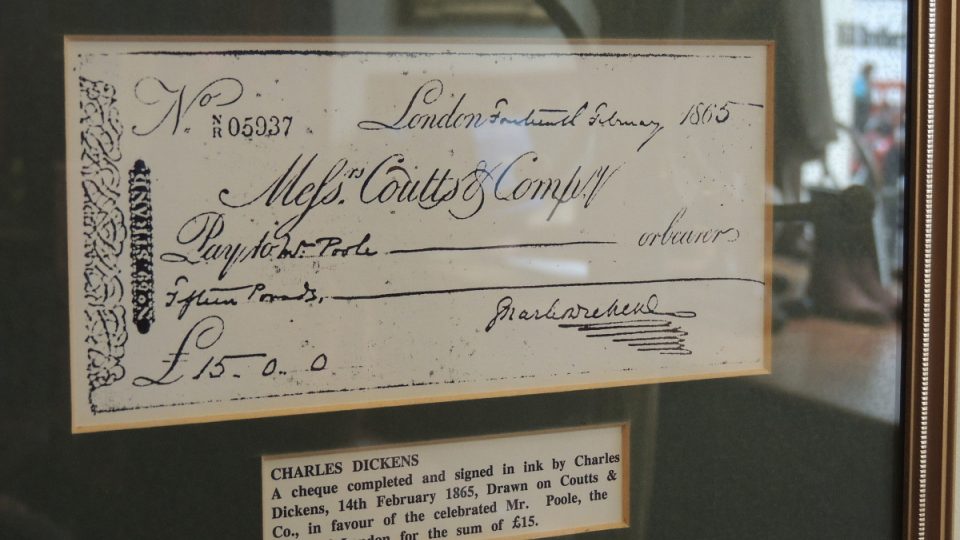 No. NR 05937
London Fourteenth February 1865
Messrs. Coutts & Compy
Pay to Mr. Poole or bearer
Fifteen Pounds,
Charles Dickens
£15 - 0 - 0
No 59 STRAND
CHARLES DICKENS
A cheque completed and signed in ink by Charles
Dickens, 14th February 1865, Drawn on Coutts &
Co., in favour of the celebrated Mr. Poole, the
London for the sum of £15.